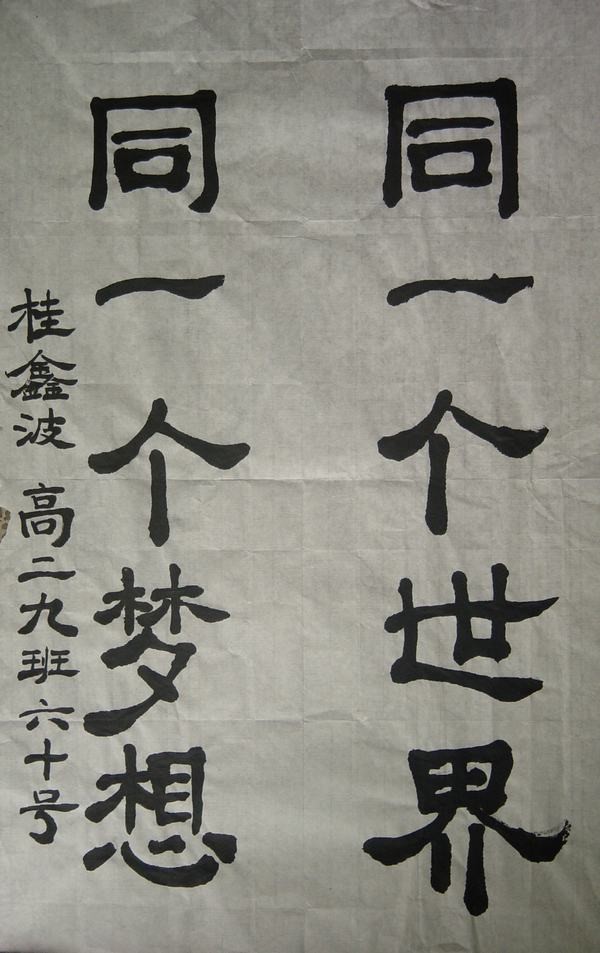 同一个世界
同一个梦想
桂鑫波 高二九班六十号